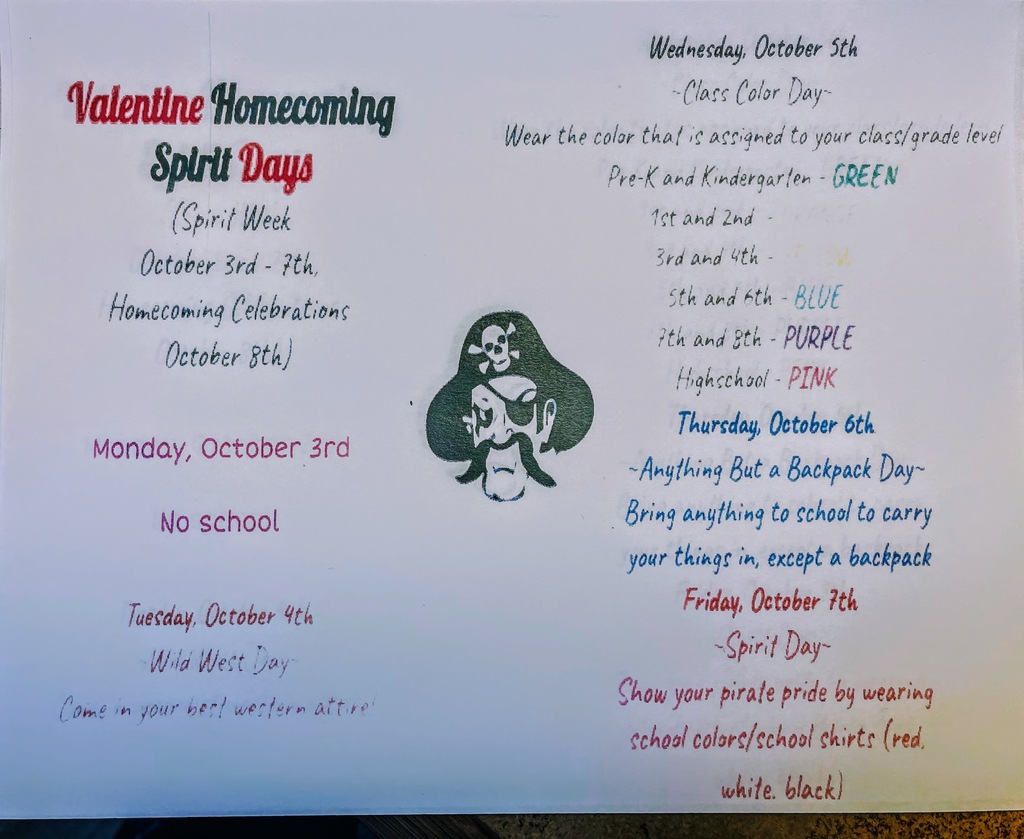 Valentine Homecoming
Spirit Days
(Spirit Week
October 3rd - 7th,
Homecoming Celebrations
October 8th)
Monday, October 3rd
No school
Tuesday, October 4th
~Wild West Day~
Come in your best western attire!
Wednesday, October 5th
~Class Color Day~
Wear the color that is assigned to your class/grade level
Pre-K and Kindergarten - GREEN
1st and 2nd -
3rd and 4th -
5th and 6th - BLUE
7th and 8th - PURPLE
Highschool - PINK
Thursday, October 6th
~Anything But a Backpack Day~
Bring anything to school to carry
your things in, except a backpack
Friday, October 7th
~Spirit Day~
Show your pirate pride by wearing
school colors/school shirts (red,
white, black)